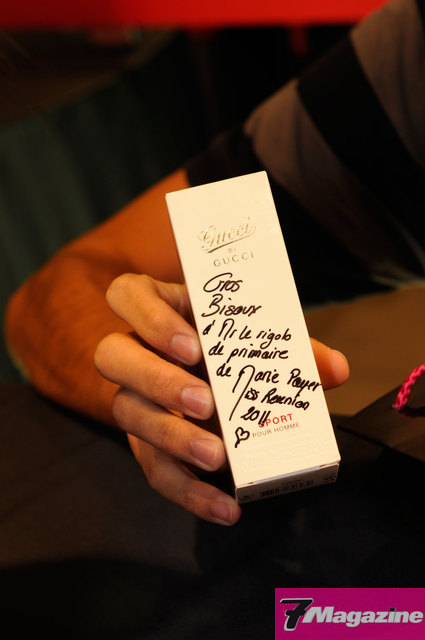 Gucci
BY
GUCCI
Gros
Bisoux
à Mr le rigolo
de primaire
de Marie Payet
Miss Reunion
2011
SPORT
POUR HOMME
7Magazine